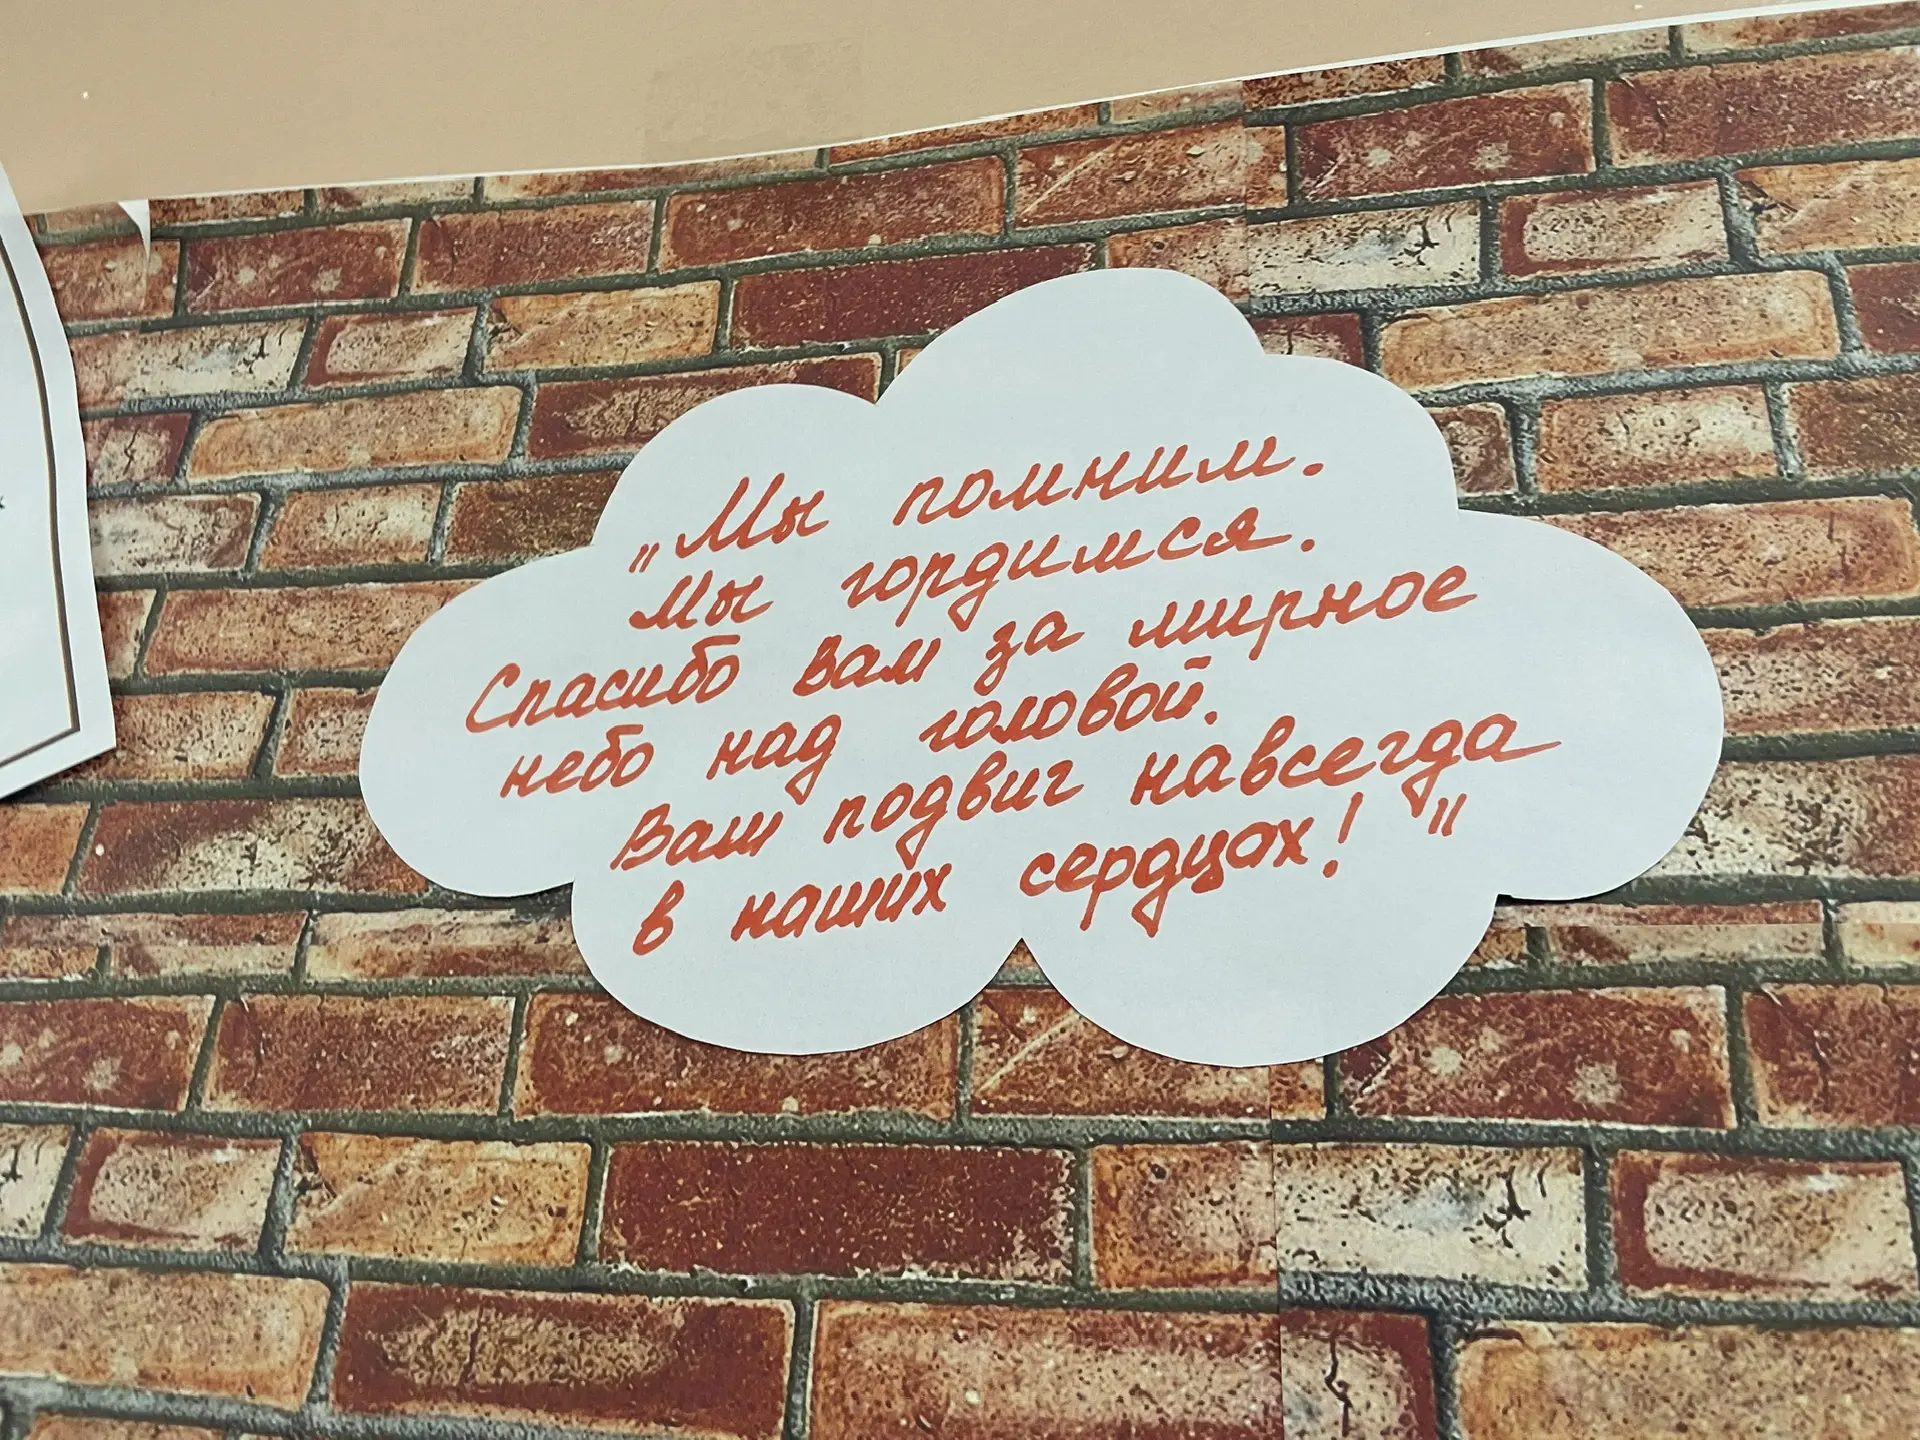 „Мы помним.
Мы гордимся.
Спасибо Вам за мирное
небо над головой.
Ваш подвиг навсегда
в наших сердцах!"